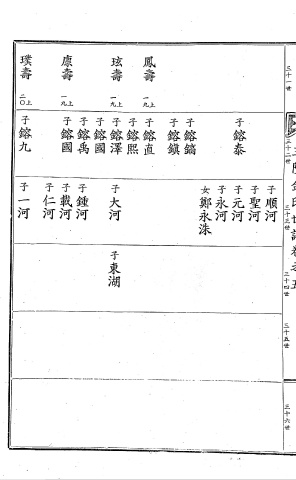 三十一世
三十二世
三十三世
三十四世
三十五世
三十六世
鳳壽 上一九
玹壽 上一九
康壽 上一九
璞壽 上二〇
子鎔泰
子鎔鎬
子鎔鎭
子鎔直
子鎔熙
子鎔澤
子鎔國
子鎔禹
子鎔國
子鎔九
子順河
子聖河
子元河
子永河
女鄭永洙
子大河
子鍾河
子載河
子仁河
子一河
子東湖